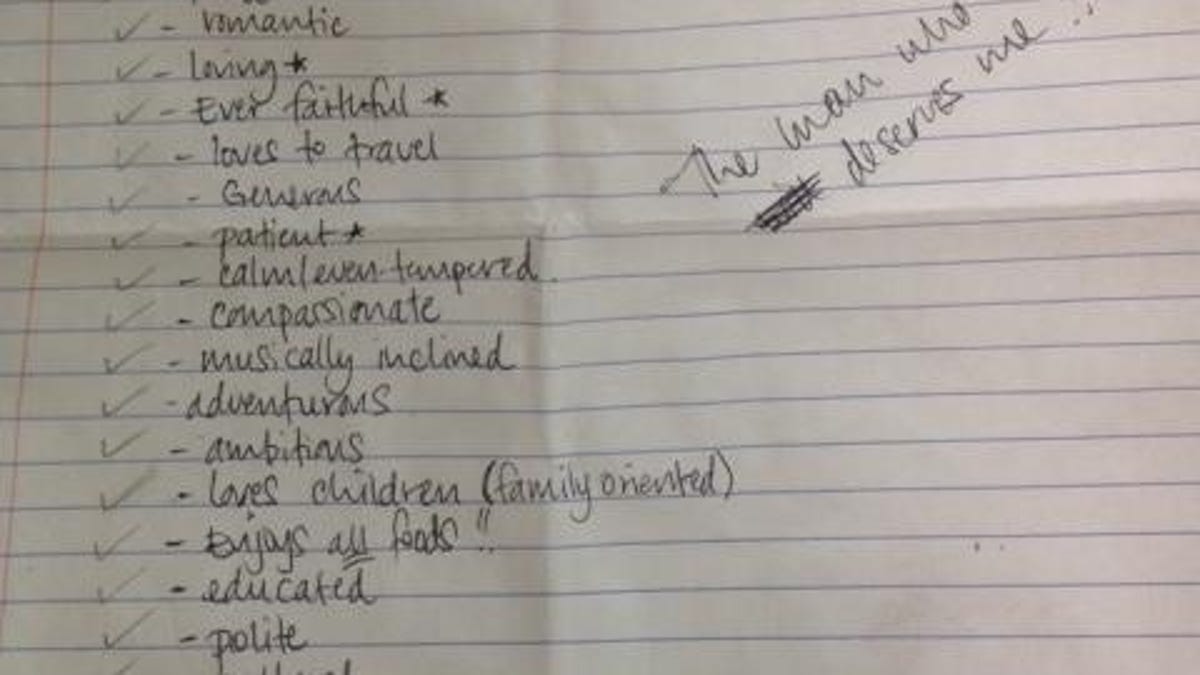 ✓ - romantic
✓ - loving *
✓ - Ever faithful *
✓ - loves to travel
✓ - Generous
✓ - patient *
✓ - calm/even-tempered.
✓ - compassionate
✓ - musically inclined
✓ - adventurous
✓ - ambitious
✓ - loves children (family oriented)
✓ - Enjoys all foods!!
✓ - educated
✓ - polite
The man who
deserves me !!